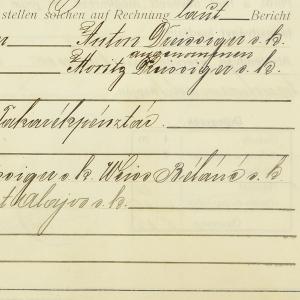 stellen solchen auf Rechnung laut Bericht
Anton Dreissiger s. k.
angenommen
Moritz Dreissiger s. k.
Takarékpénztár
ssiger s. k. Weiss Béláné s. k.
t Alajos s. k.